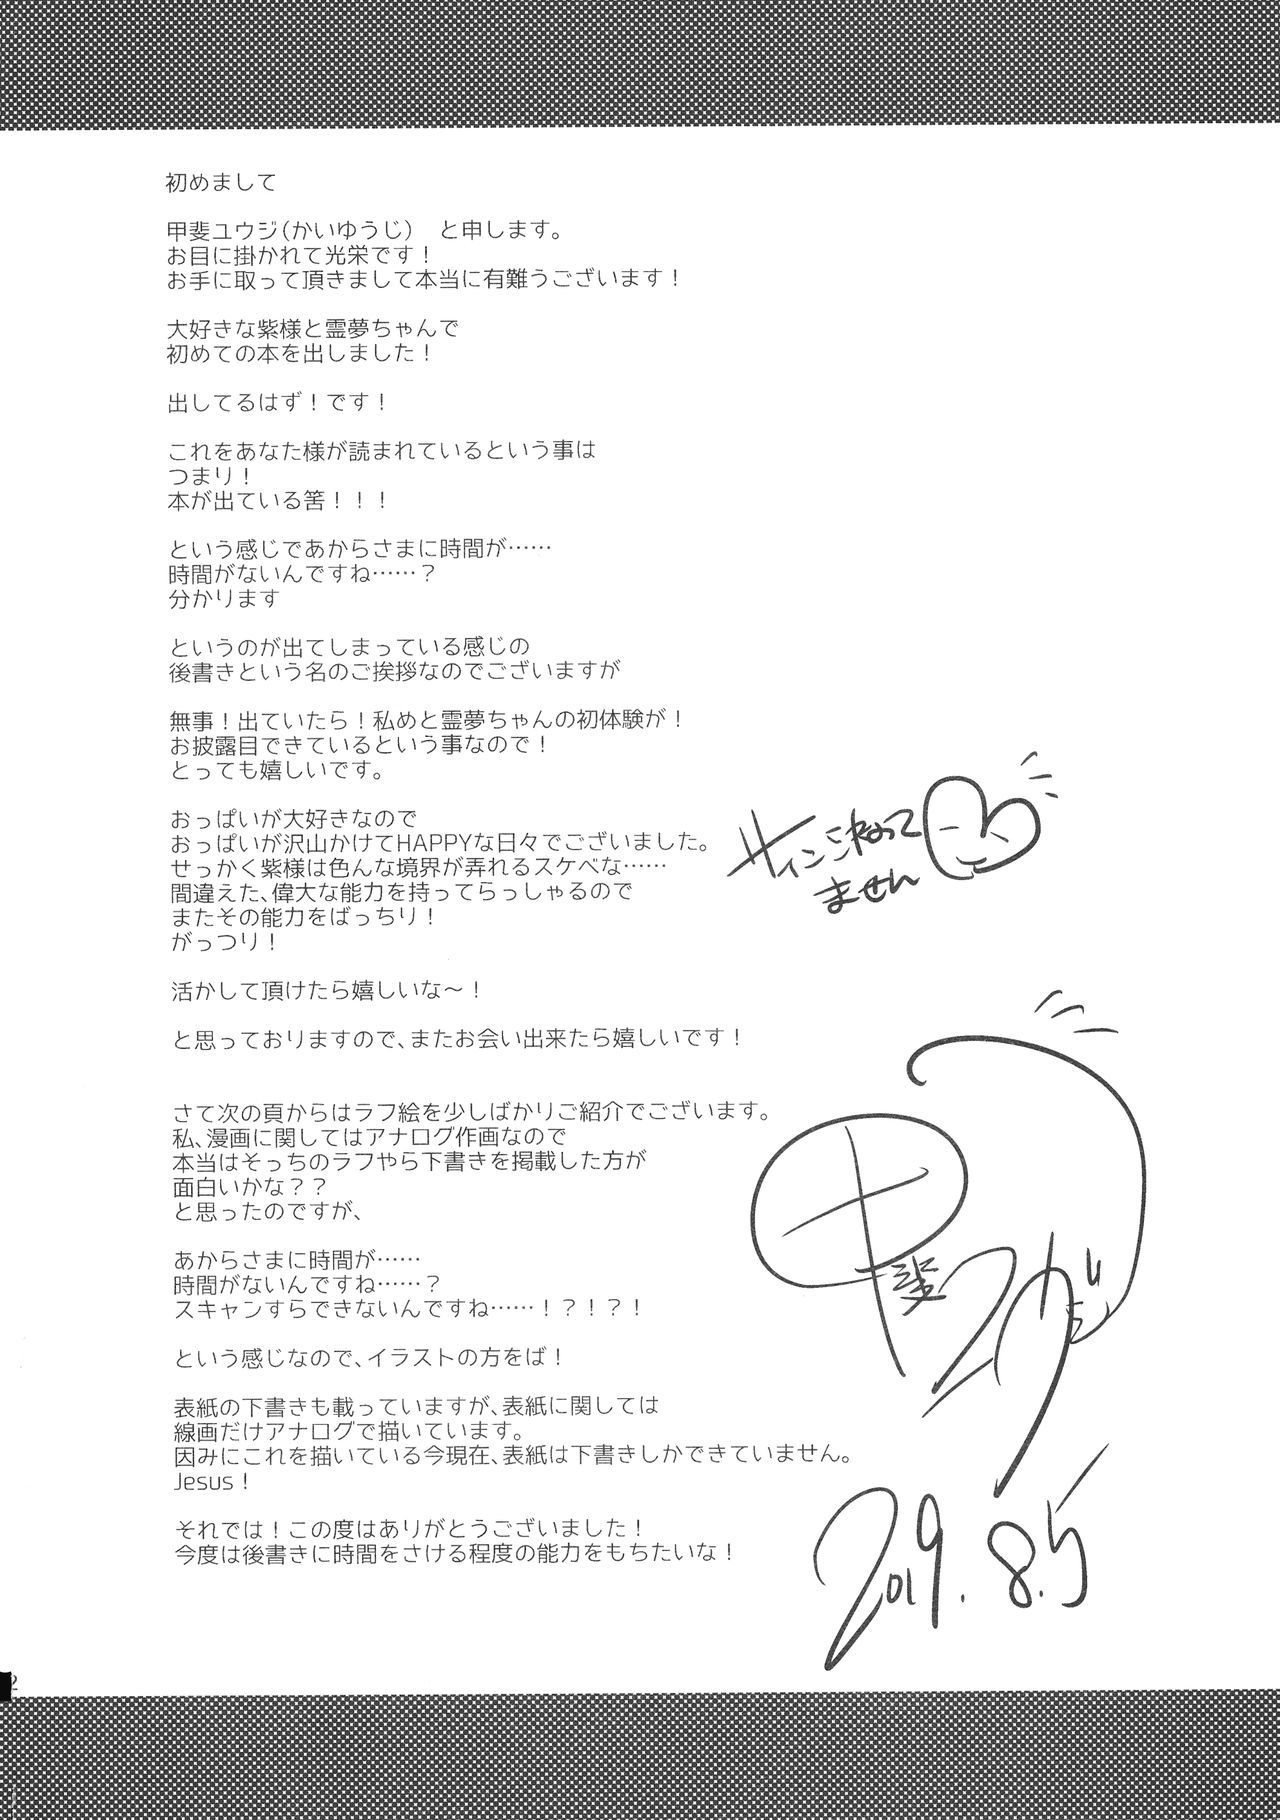 初めまして
甲斐ユウジ(かいゆうじ)　と申します。
お目に掛かれて光栄です！
お手に取って頂きまして本当に有難うございます！
大好きな紫様と霊夢ちゃんで
初めての本を出しました！
出してるはず！です！
これをあなた様が読まれているという事は
つまり！
本が出ている筈！！！
という感じであからさまに時間が……
時間がないんですね……？
分かります
というのが出てしまっている感じの
後書きという名のご挨拶なのでございますが
無事！出ていたら！私めと霊夢ちゃんの初体験が！
お披露目できているという事なので！
とっても嬉しいです。
おっぱいが大好きなので
おっぱいが沢山かけてHAPPYな日々でございました。
せっかく紫様は色んな境界が弄れるスケベな……
間違えた、偉大な能力を持ってらっしゃるので
またその能力をばっちり！
がっつり！
活かして頂けたら嬉しいな〜！
と思っておりますので、またお会い出来たら嬉しいです！
さて次の頁からはラフ絵を少しばかりご紹介でございます。
私、漫画に関してはアナログ作画なので
本当はそっちのラフやら下書きを掲載した方が
面白いかな？？
と思ったのですが、
あからさまに時間が……
時間がないんですね……？
スキャンすらできないんですね……！？！？！
という感じなので、イラストの方をば！
表紙の下書きも載っていますが、表紙に関しては
線画だけアナログで描いています。
因みにこれを描いている今現在、表紙は下書きしかできていません。
Jesus！
それでは！この度はありがとうございました！
今度は後書きに時間をさける程度の能力をもちたいな！
サイン決まって
ません
甲斐ユウジ
2019.8.5
2